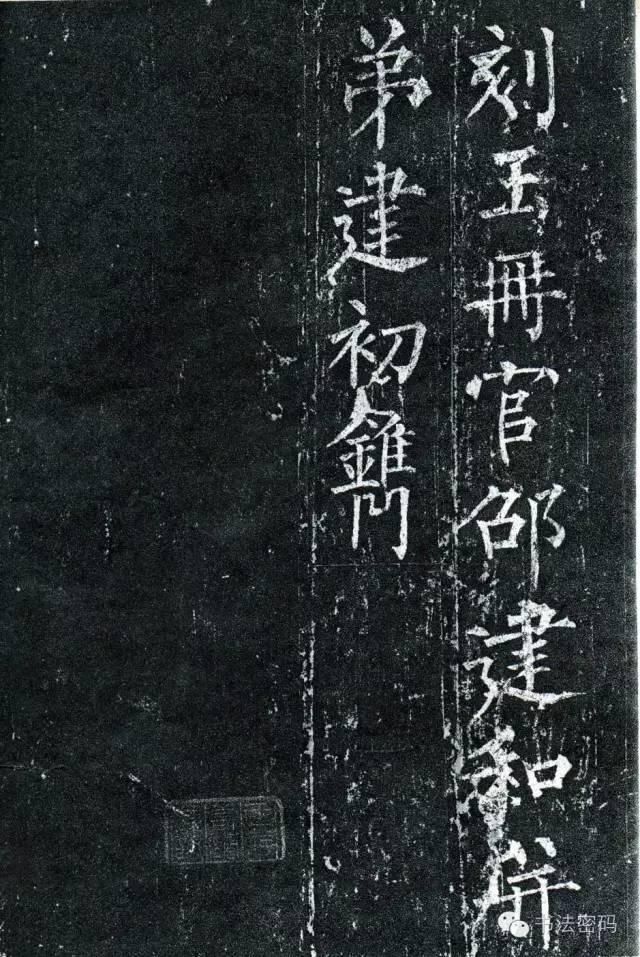 刻玉冊官邵建和并
弟建初鐫
书法密码